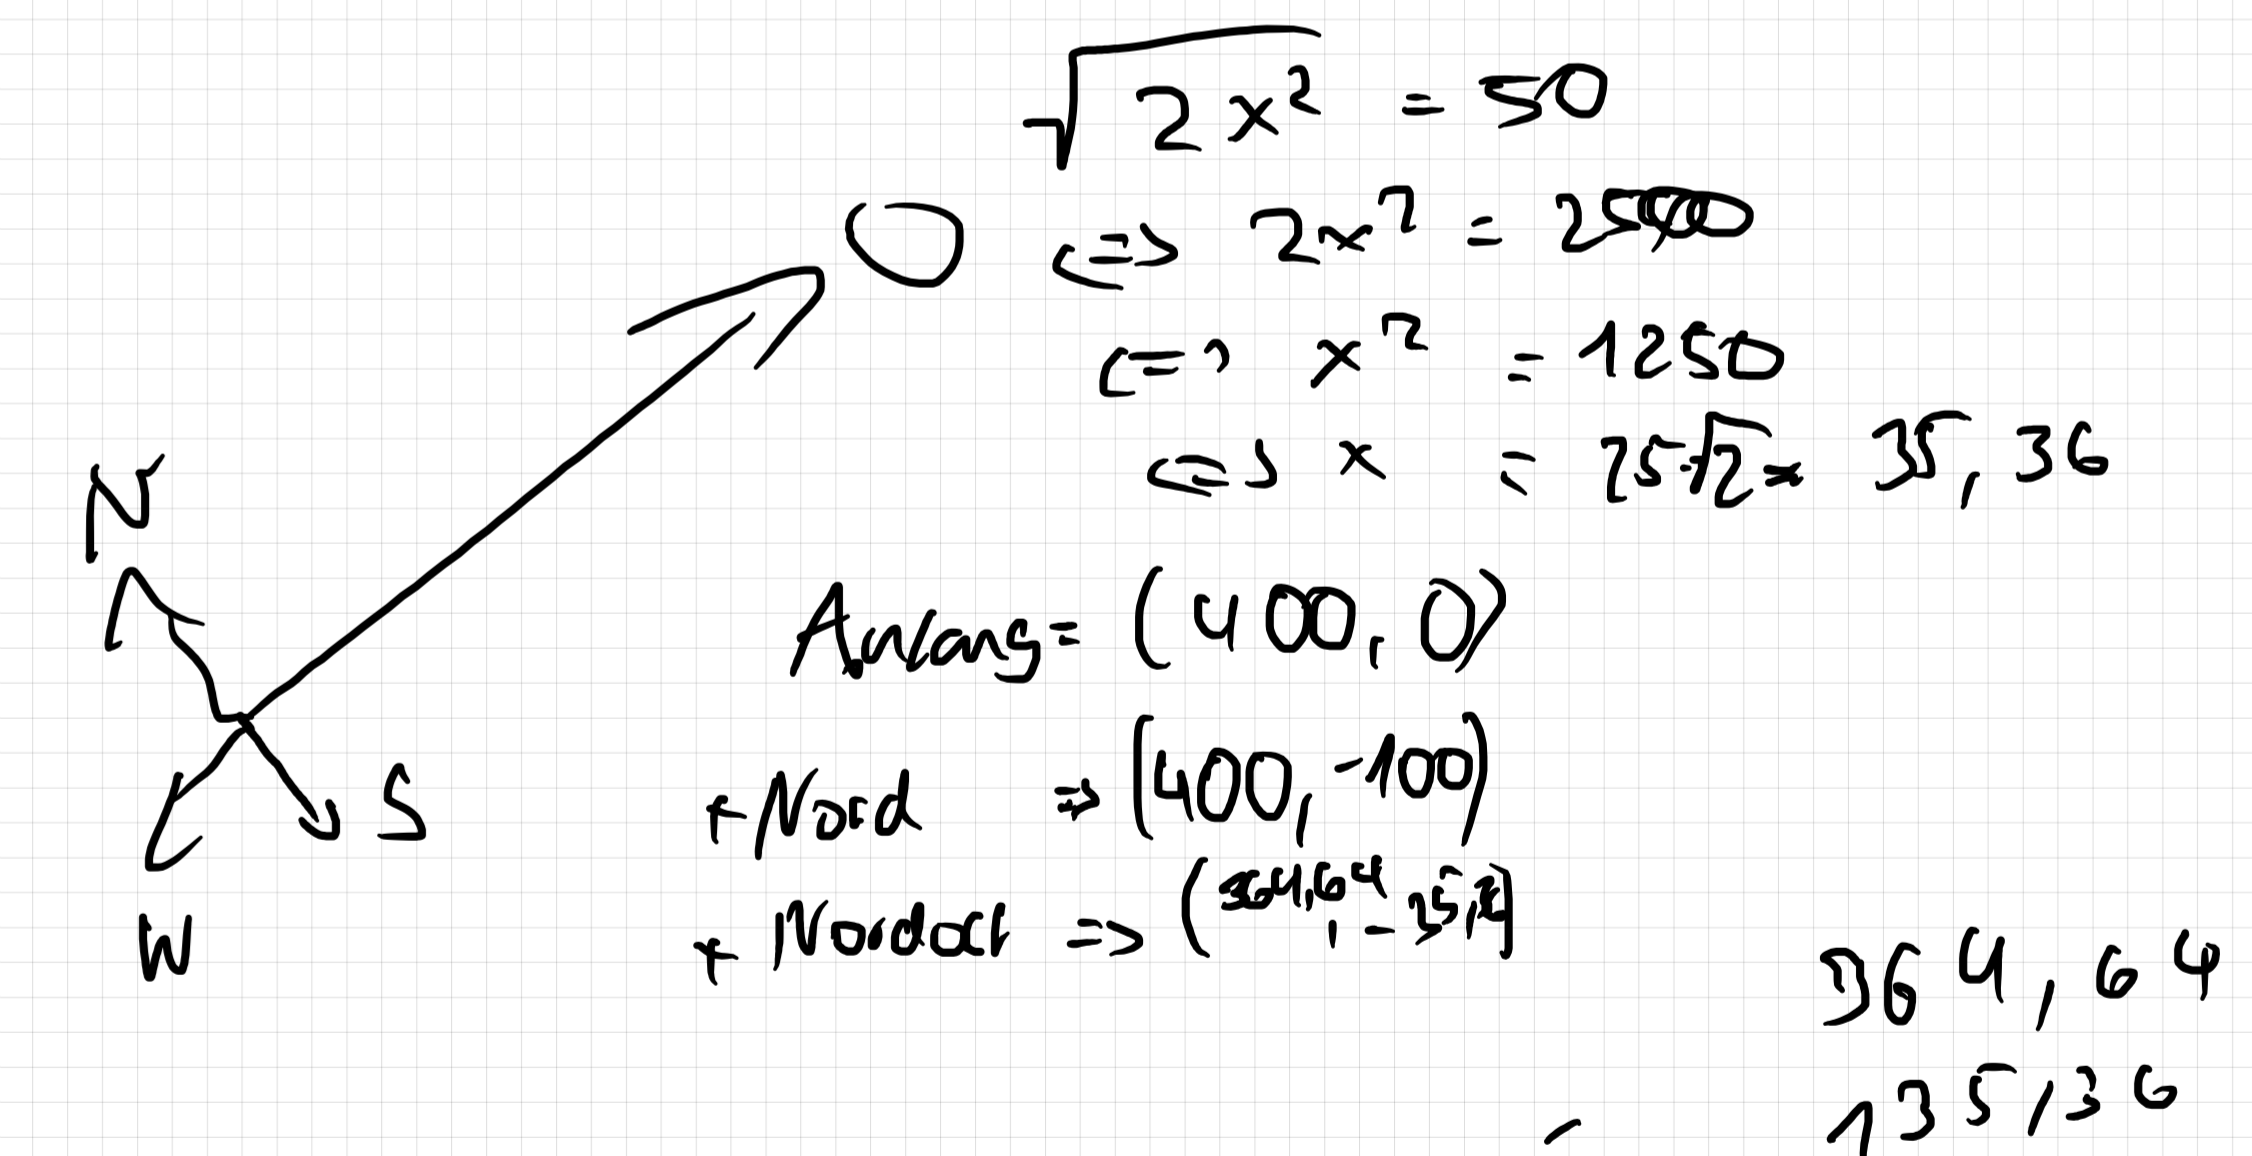 √2x² = 50
O
<=> 2x² = 2500
<=> x² = 1250
<=> x = 25·√2 ≈ 35,36
N
Anfang = (400, 0)
+ Nord => (400, -100)
S
+ Nordost => (364,64, -
W
364,64
135,36